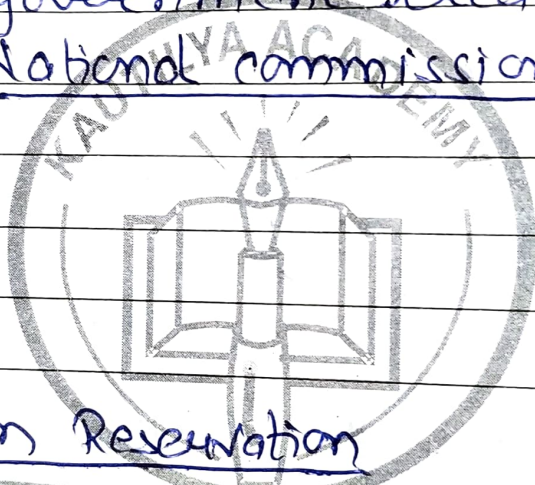 government
National commission
KAUTILYA ACADEMY
n Reservation